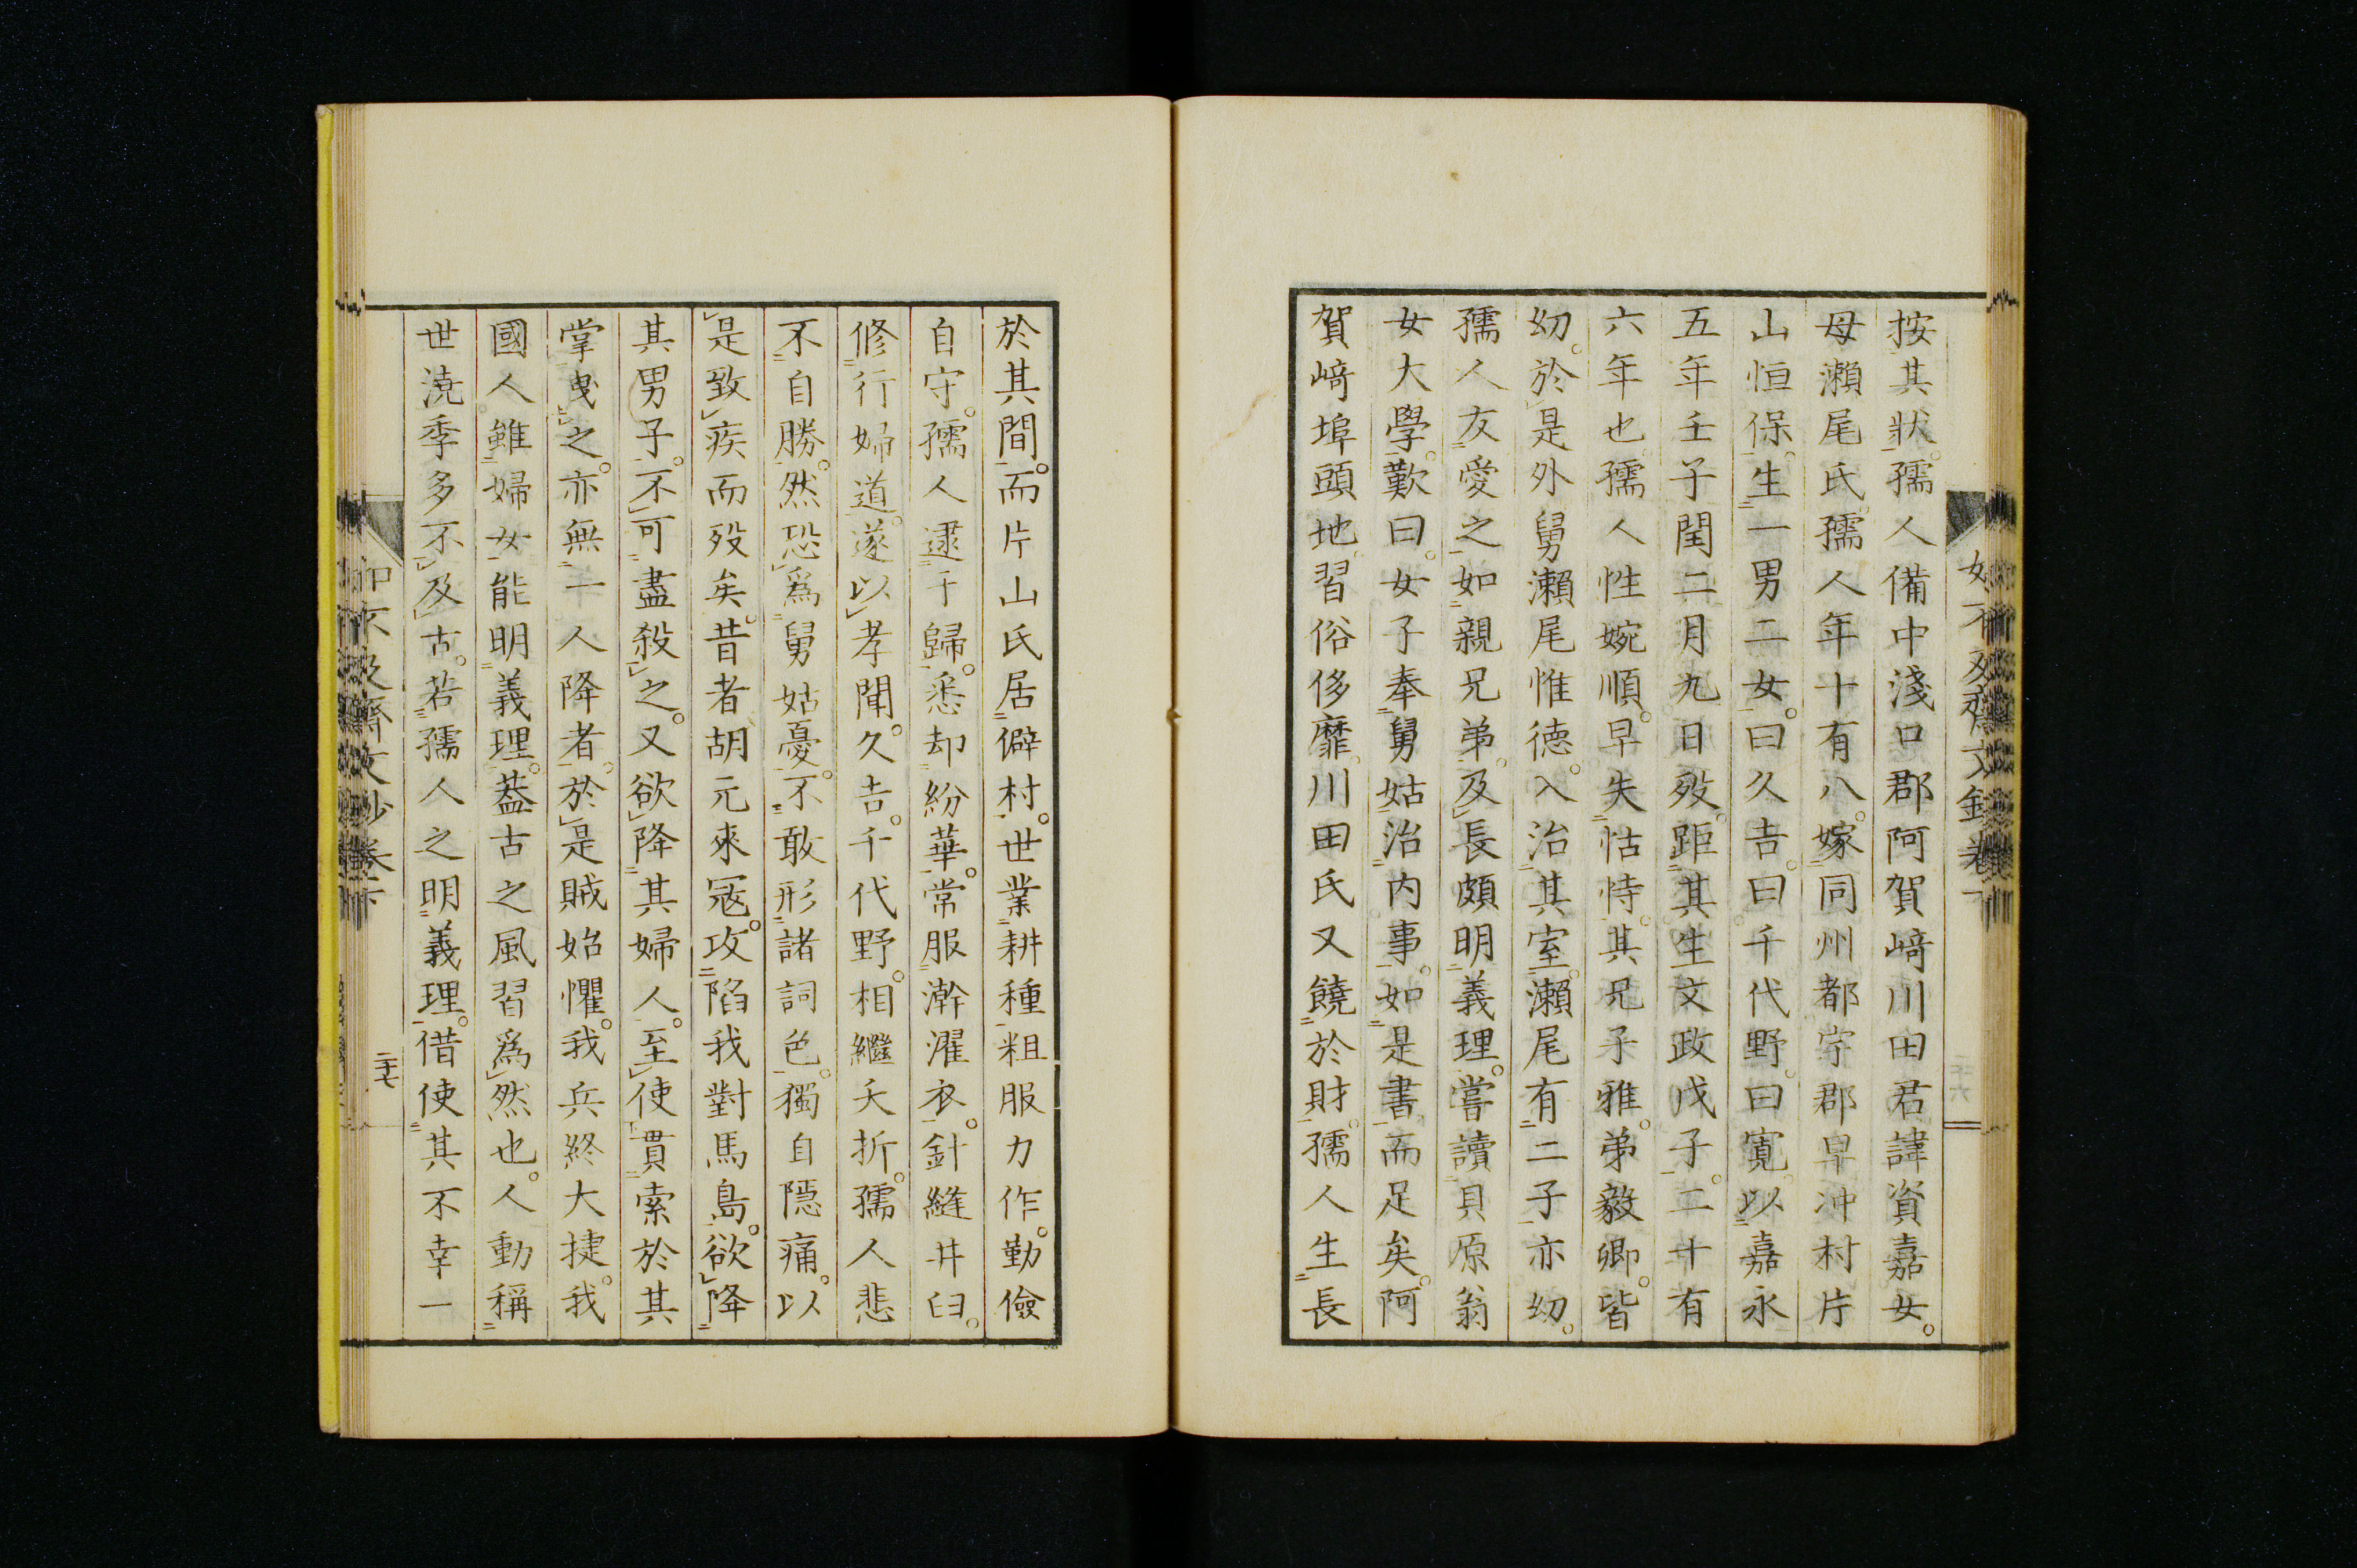 按其狀。孺人備中淺口郡阿賀﨑川田君諱資嘉女。
母瀨尾氏。孺人年十有八。嫁同州都宇郡早沖村片
山恒保。生一男二女。曰久吉。曰千代野。曰寛。以嘉永
五年壬子閏二月九日歿。距其生文政戊子。二十有
六年也。孺人性婉順。早失怙恃。其兄子雅。弟毅卿。皆
幼。於是外舅瀨尾惟德。入治其室。瀨尾有二子。亦幼。
孺人友愛之如親兄弟。及長頗明義理。嘗讀貝原翁
女大學。歎曰。女子奉舅姑。治内事。如是書而足矣。阿
賀﨑埠頭地。習俗侈靡。川田氏又饒於財。孺人生長
於其間。而片山氏居僻村。世業耕種。粗服力作。勤儉
自守。孺人逮于歸。悉却紛華。常服澣濯衣。針縫井臼。
修行婦道。遂以孝聞。久吉。千代野。相繼夭折。孺人悲
不自勝。然恐爲舅姑憂。不敢形諸詞色。獨自隱痛。以
是致疾而歿矣。昔者胡元來冦。攻陷我對馬島。欲降
其男子。不可盡殺之。又欲降其婦人。至使貫索於其
掌曳之。亦無一人降者。於是賊始懼。我兵終大捷。我
國人雖婦女能明義理。蓋古之風習爲然也。人動稱
世澆季多不及古。若孺人之明義理。借使其不幸一
二十七